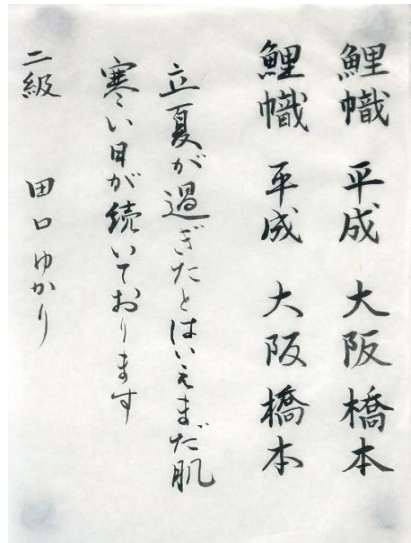 鯉幟 平成 大阪橋本
鯉幟 平成 大阪橋本
立夏が過ぎたとはいえまだ肌
寒い日が続いております
二級 田口ゆかり